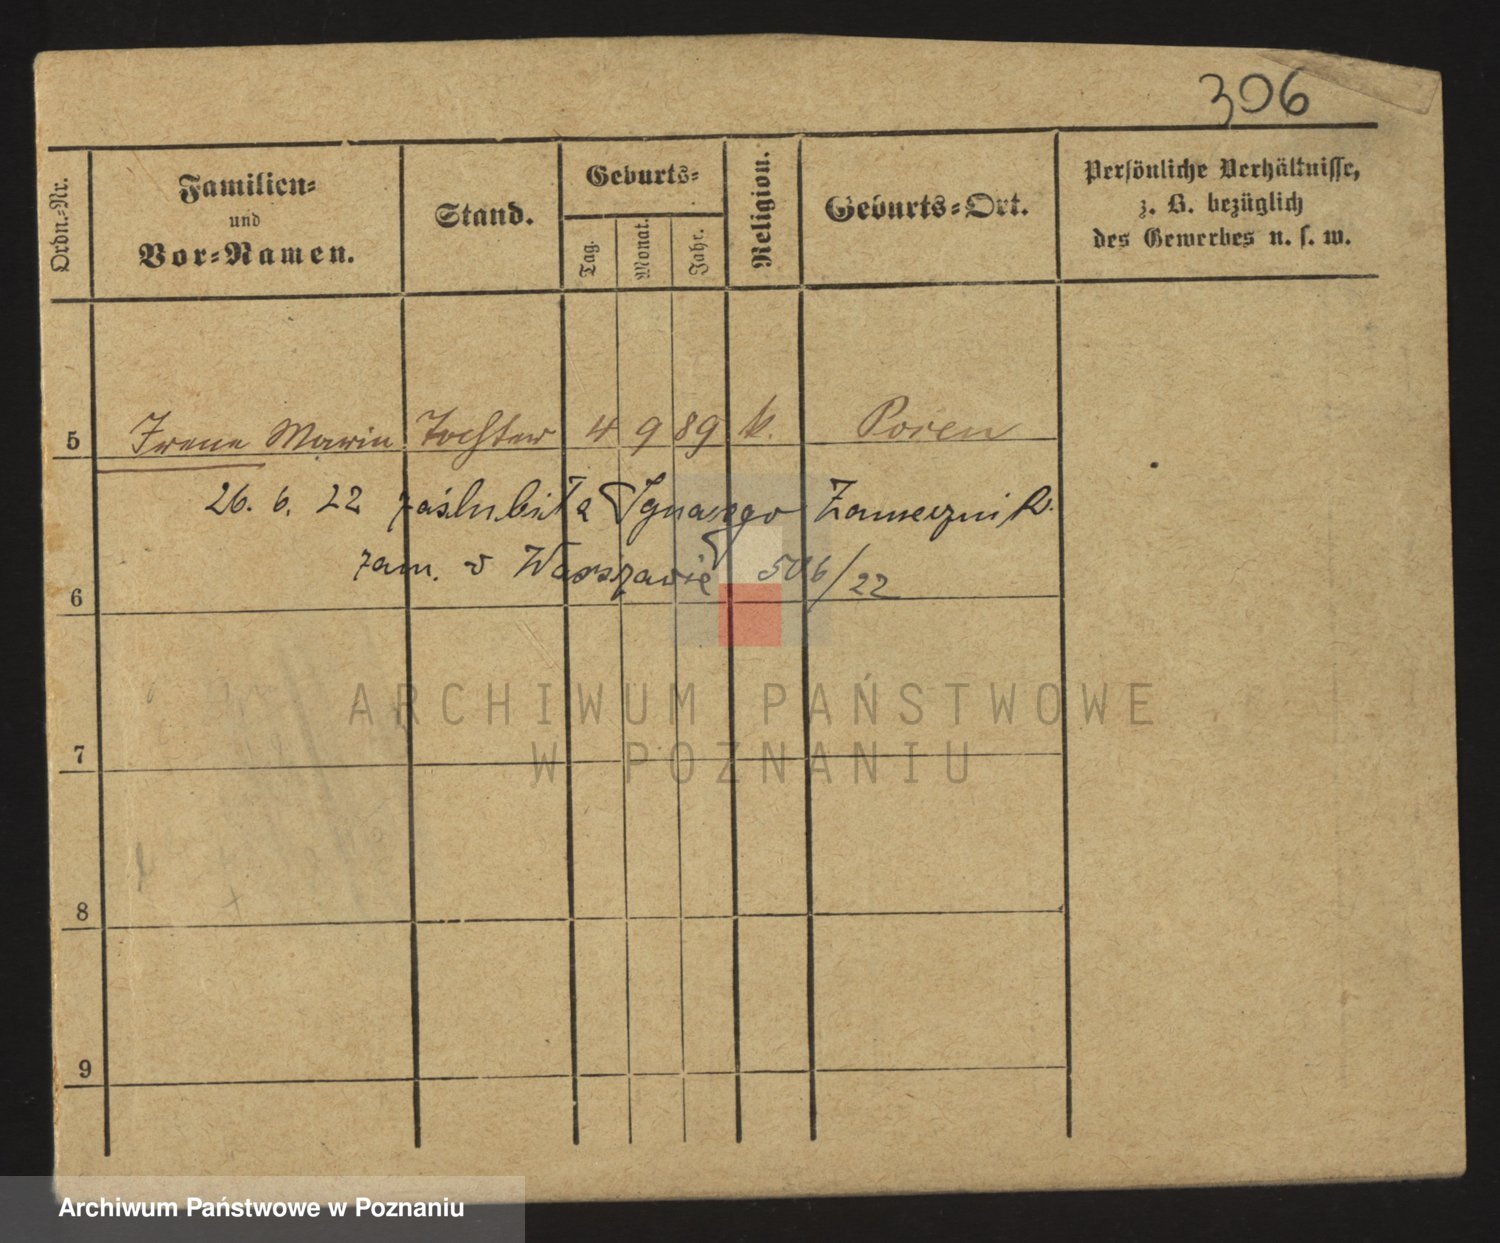 306
Ordn.-Nr.
Familien-
und
Vor-Namen.
Stand.
Geburts-
Tag.
Monat.
Jahr.
Religion.
Geburts-Ort.
Persönliche Verhältnisse,
z. B. bezüglich
des Gewerbes u. s. w.
5 Irene Maria Tochter 4 9 89 k. Posen
26. 6. 22 zaślubiła Ignacego Zamecznik.
zam. w Warszawie 506/22
6
7
8
9
ARCHIWUM PAŃSTWOWE
W POZNANIU
Archiwum Państwowe w Poznaniu